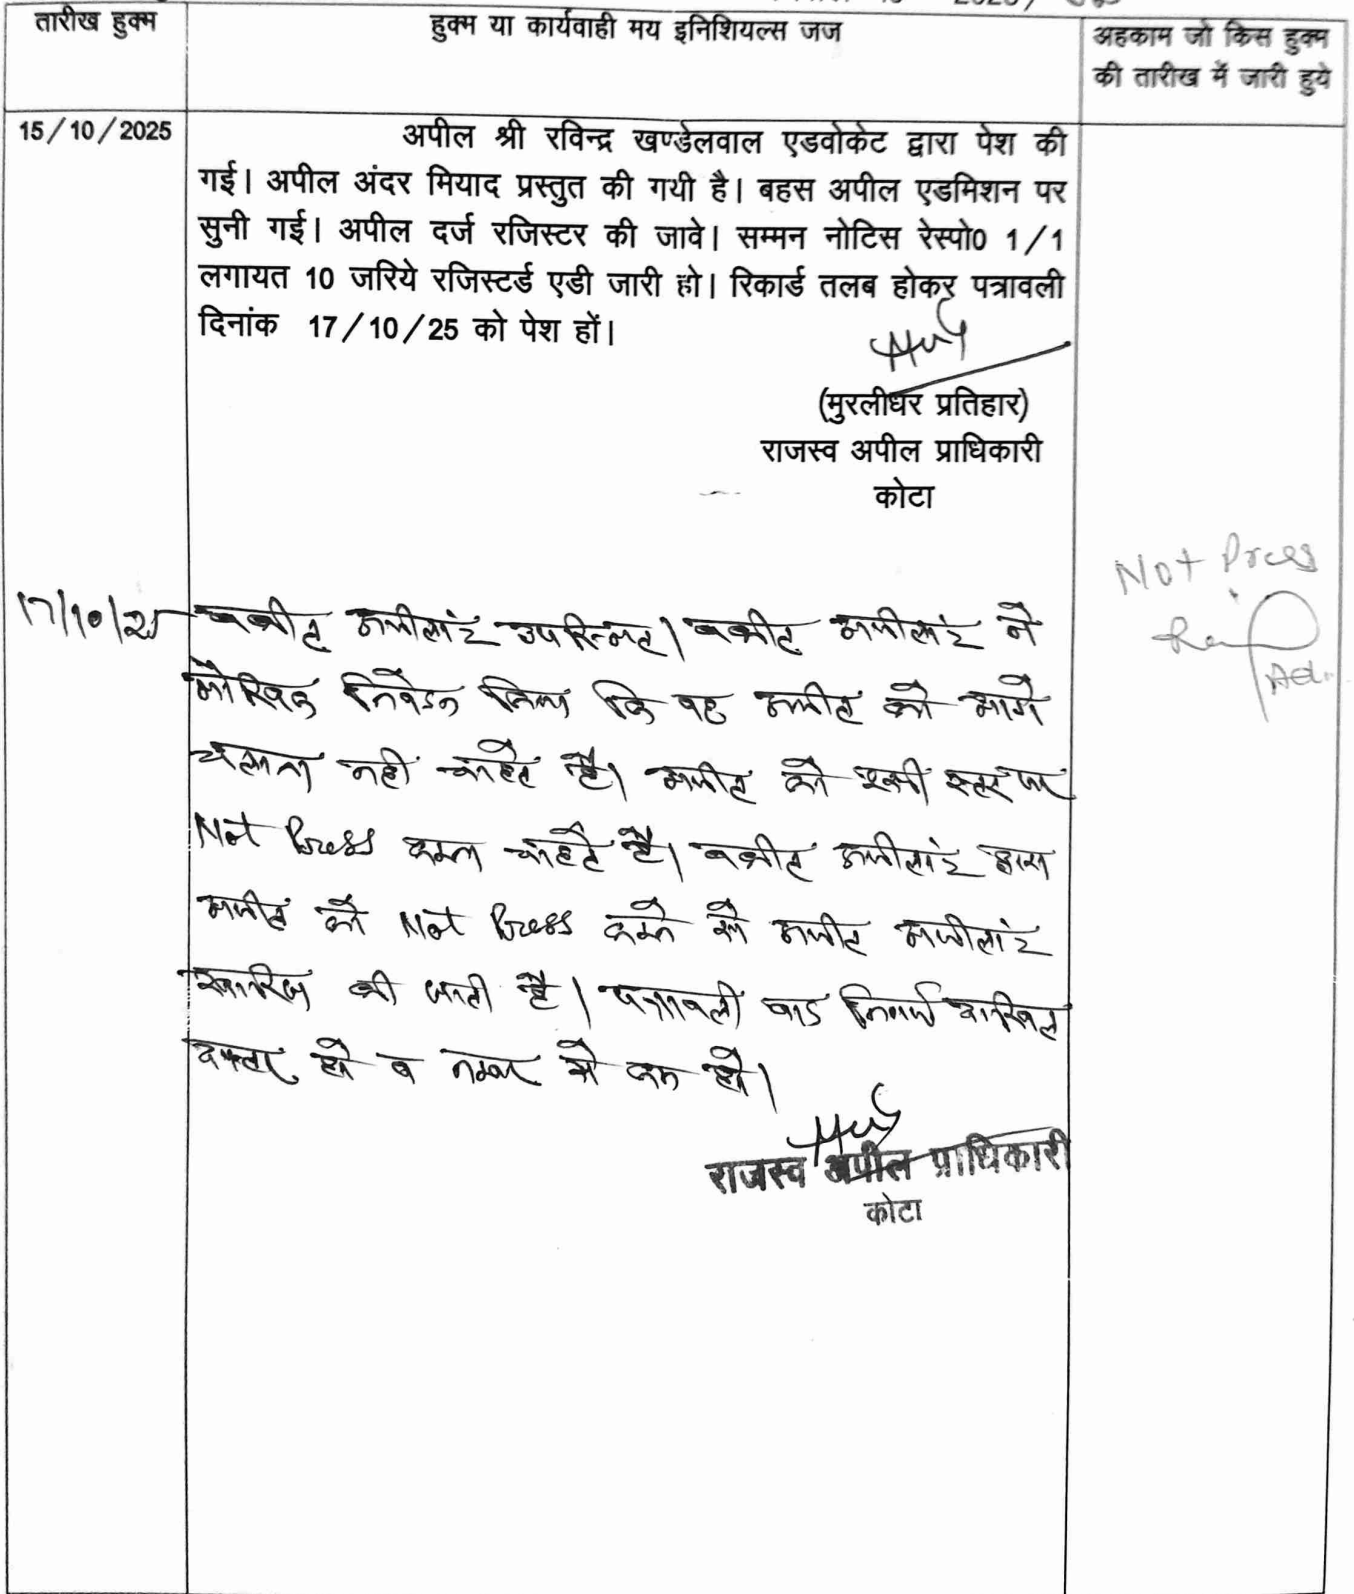 तारीख हुक्म
हुक्म या कार्यवाही मय इनिशियल्स जज
अहकाम जो किस हुक्म
की तारीख में जारी हुये
15/10/2025
अपील श्री रविन्द्र खण्डेलवाल एडवोकेट द्वारा पेश की
गई। अपील अंदर मियाद प्रस्तुत की गयी है। बहस अपील एडमिशन पर
सुनी गई। अपील दर्ज रजिस्टर की जावे। सम्मन नोटिस रेस्पो0 1/1
लगायत 10 जरिये रजिस्टर्ड एडी जारी हो। रिकार्ड तलब होकर पत्रावली
दिनांक 17/10/25 को पेश हों।
(मुरलीधर प्रतिहार)
राजस्व अपील प्राधिकारी
कोटा
Not Press
Adv.
17/10/25
वकील अपीलांट उपस्थित। वकील अपीलांट ने
मौखिक निवेदन किया कि वह अपील को आगे
चलाना नही चाहते है। अपील को इसी स्तर पर
Not Press करना चाहते है। वकील अपीलांट द्वारा
अपील को Not Press करने से अपील अपीलांट
खारिज की जाती है। पत्रावली बाद निर्णय दाखिल
दफ्तर हो व नम्बर से कम हो।
राजस्व अपील प्राधिकारी
कोटा